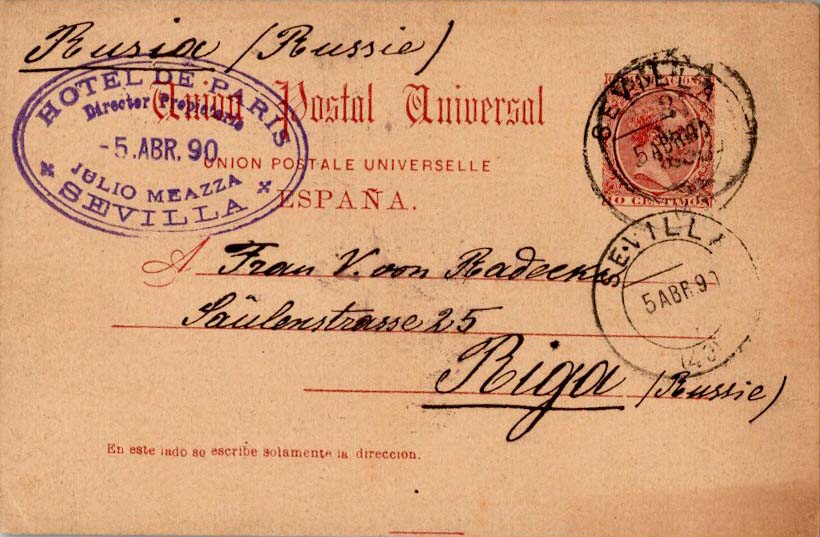 Rusia (Russie)
HOTEL DE PARIS
Director Propietario
-5. ABR. 90
JULIO MEAZZA
SEVILLA
Union Postal Universal
UNION POSTALE UNIVERSELLE
ESPAÑA.
10 CENTIMOS
SEVILLA
5 ABR 90
SEVILLA
5 ABR 90
(43)
A Frau V. von Radecki
Säulenstrasse 25
Riga (Russie)
En este lado se escribe solamente la direccion.